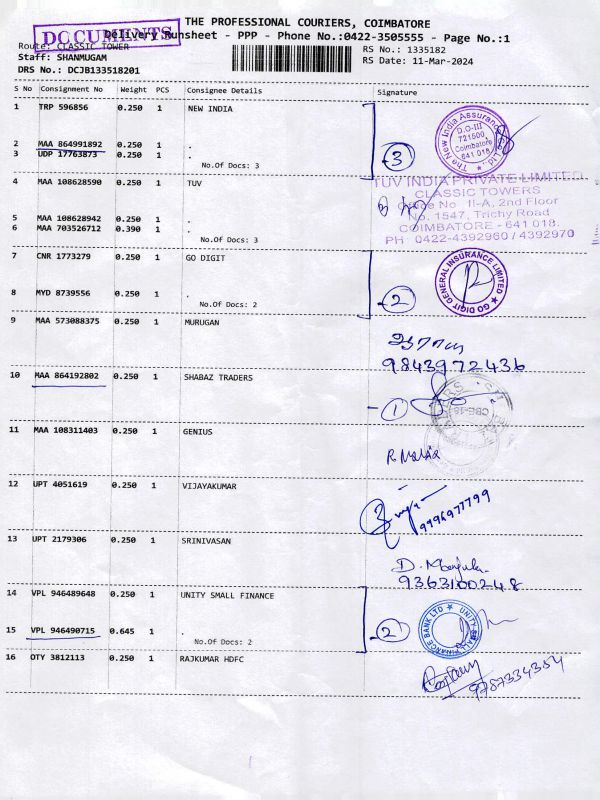 THE PROFESSIONAL COURIERS, COIMBATORE
DOCUMENTS
Delivery Runsheet - PPP - Phone No.:0422-3505555 - Page No.:1
Route: CLASSIC TOWER
RS No.: 1335182
Staff: SHANMUGAM
RS Date: 11-Mar-2024
DRS No.: DCJB133518201
S No Consignment No Weight PCS Consignee Details Signature
1 TRP 596856 0.250 1 NEW INDIA
2 MAA 864991892 0.250 1 .
3 UDP 17763873 0.250 1 .
No.Of Docs: 3
3
The New India Assurance
D.O-III
721500
Coimbatore
641 018
4 MAA 108628590 0.250 1 TUV
5 MAA 108628942 0.250 1 .
6 MAA 703526712 0.390 1 .
No.Of Docs: 3
TUV INDIA PRIVATE LIMITED
CLASSIC TOWERS
II-A, 2nd Floor
No. 1547, Trichy Road
COIMBATORE - 641 018.
PH : 0422-4392960 / 4392970
7 CNR 1773279 0.250 1 GO DIGIT
8 MYD 8739556 0.250 1 .
No.Of Docs: 2
2
GO DIGIT GENERAL INSURANCE LIMITED
9 MAA 573088375 0.250 1 MURUGAN
9843972436
10 MAA 864192802 0.250 1 SHABAZ TRADERS
1
11 MAA 108311403 0.250 1 GENIUS
12 UPT 4051619 0.250 1 VIJAYAKUMAR
9994977799
13 UPT 2179306 0.250 1 SRINIVASAN
9363100248
14 VPL 946489648 0.250 1 UNITY SMALL FINANCE
15 VPL 946490715 0.645 1 .
No.Of Docs: 2
2
UNITY SMALL FINANCE BANK LTD
16 OTY 3812113 0.250 1 RAJKUMAR HDFC
9787334354